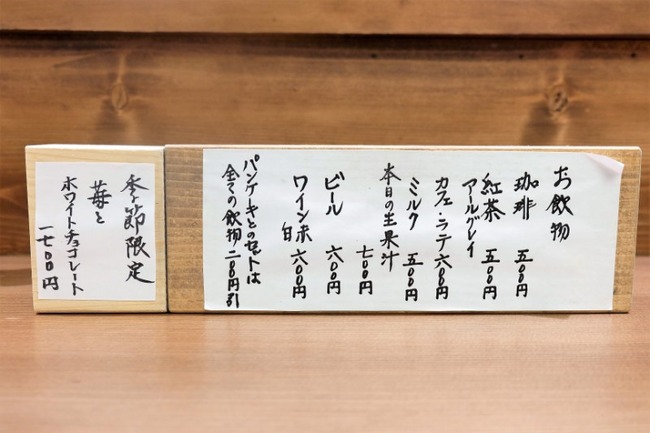 お飲物
珈琲 五〇〇円
紅茶 五〇〇円
アールグレイ
カフェ・ラテ 六〇〇円
ミルク 五〇〇円
本日の生果汁
七〇〇円
ビール 六〇〇円
ワイン赤白 六〇〇円
パンケーキとのセットは
全ての飲物二〇〇円引
季節限定
苺と
ホワイトチョコレート
一七〇〇円